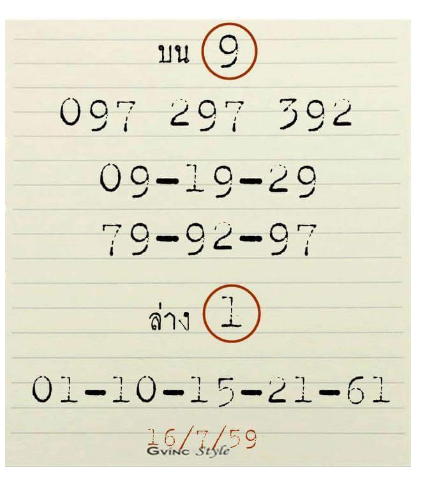 บน 9
097 297 392
09-19-29
79-92-97
ล่าง 1
01-10-15-21-61
16/7/59
GVINC Style